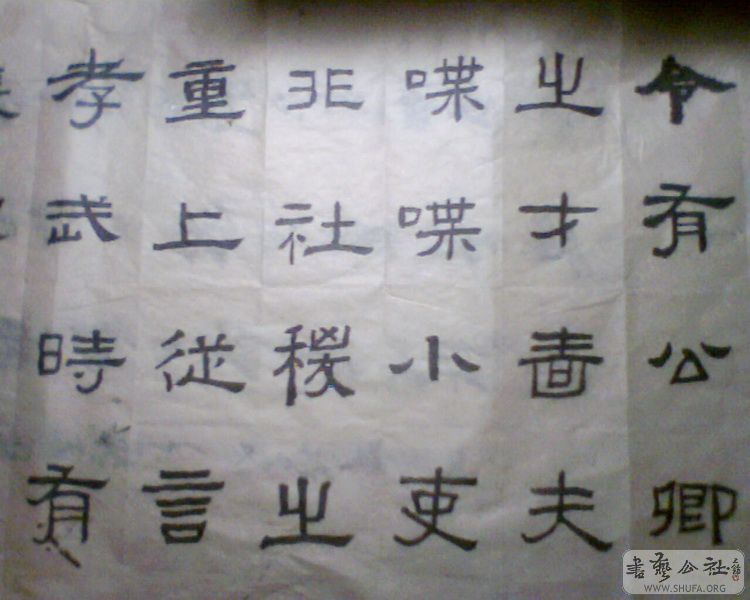 令有公卿
之才啬夫
喋喋小吏
非社稷之
重上従言
孝武時有
書藝公社
WWW.SHUFA.ORG